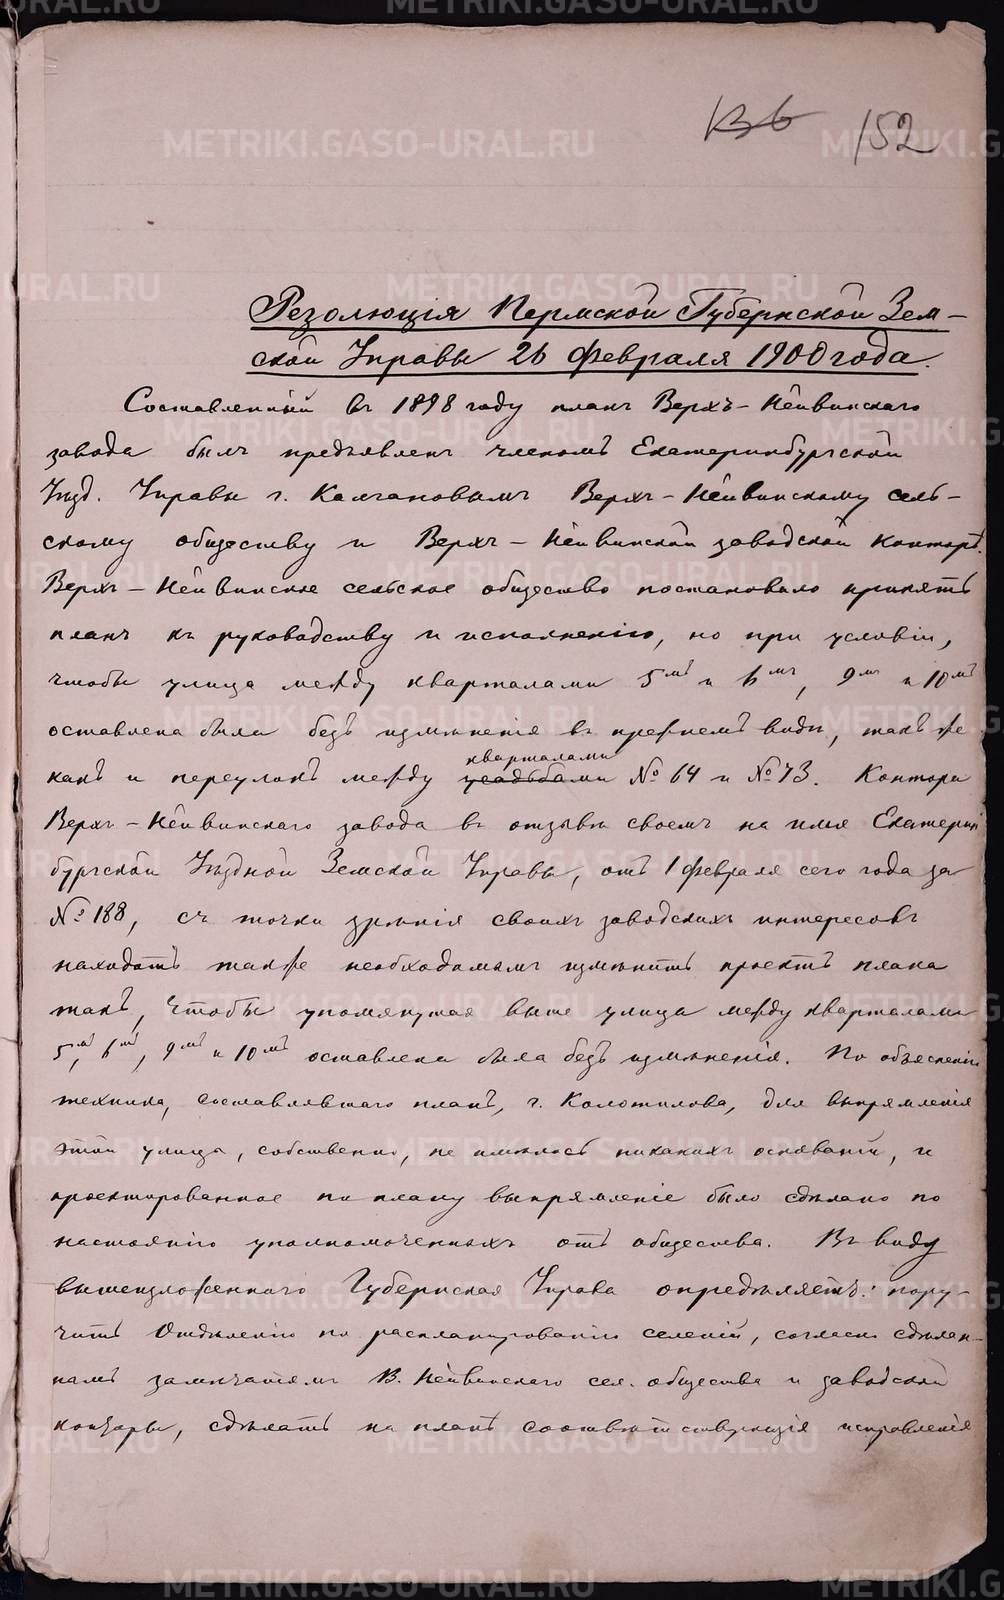 136 152
Резолюція Пермской Губернской Зем-
ской Управы 26 февраля 1900 года.
Составленный въ 1898 году планъ Верхъ-Нейвинскаго
завода былъ предъявленъ членомъ Екатеринбургской
Уѣзд. Управы г. Калгановымъ Верхъ-Нейвинскому сель-
скому обществу и Верхъ-Нейвинской заводской конторѣ.
Верхъ-Нейвинское сельское общество постановило принять
планъ къ руководству и исполненію, но при условіи,
чтобы улица между кварталами 5мъ и 6мъ, 9мъ и 10мъ
оставлена была безъ измѣненія въ прежнемъ видѣ, такъ же
кварталами
какъ и переулокъ между усадьбами № 64 и № 73. Контора
Верхъ-Нейвинскаго завода въ отзывѣ своемъ на имя Екатерин
бургской Уѣздной Земской Управы, отъ 1 февраля сего года за
№ 188, съ точки зрѣнія своихъ заводскихъ интересовъ
находитъ также необходимымъ измѣнить проектъ плана
такъ, чтобы упомянутая выше улица между кварталами
5мъ, 6мъ, 9мъ и 10мъ оставлена была безъ измѣненія. По объясненію
техника, составлявшаго планъ, г. Колотилова, для выпрямленія
этой улицы, собственно, не имѣлось никакихъ основаній, и
проектированное по плану выпрямленіе было сдѣлано по
настоянію уполномоченныхъ отъ общества. Въ виду
вышеизложеннаго Губернская Управа опредѣляетъ: пору-
чить Отдѣленію по распланированію селеній, согласно сдѣлан-
нымъ замѣчаніямъ В. Нейвинскаго сел. общества и заводской
конторы, сдѣлать на планѣ соотвѣтствующія исправленія
METRIKI.GASO-URAL.RU